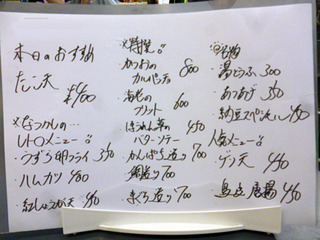 本日のおすすめ
たこ天
¥400
※なつかしの…
レトロメニュー!!
・うずら卵フライ 350
・ハムカツ 400
・紅しょうが天 400
※特撰!!
・かつおの
カルパッチョ 800
・海老の
フリット 600
・ほうれん草の 450
バターソテー
・かんぱち造り 700
造り 700
・まぐろ造り 700
名物
・湯どうふ 300
・あつあげ 350
・納豆スペシャル 450
人気メニュー!!
・ゲソ天 450
・唐揚 450